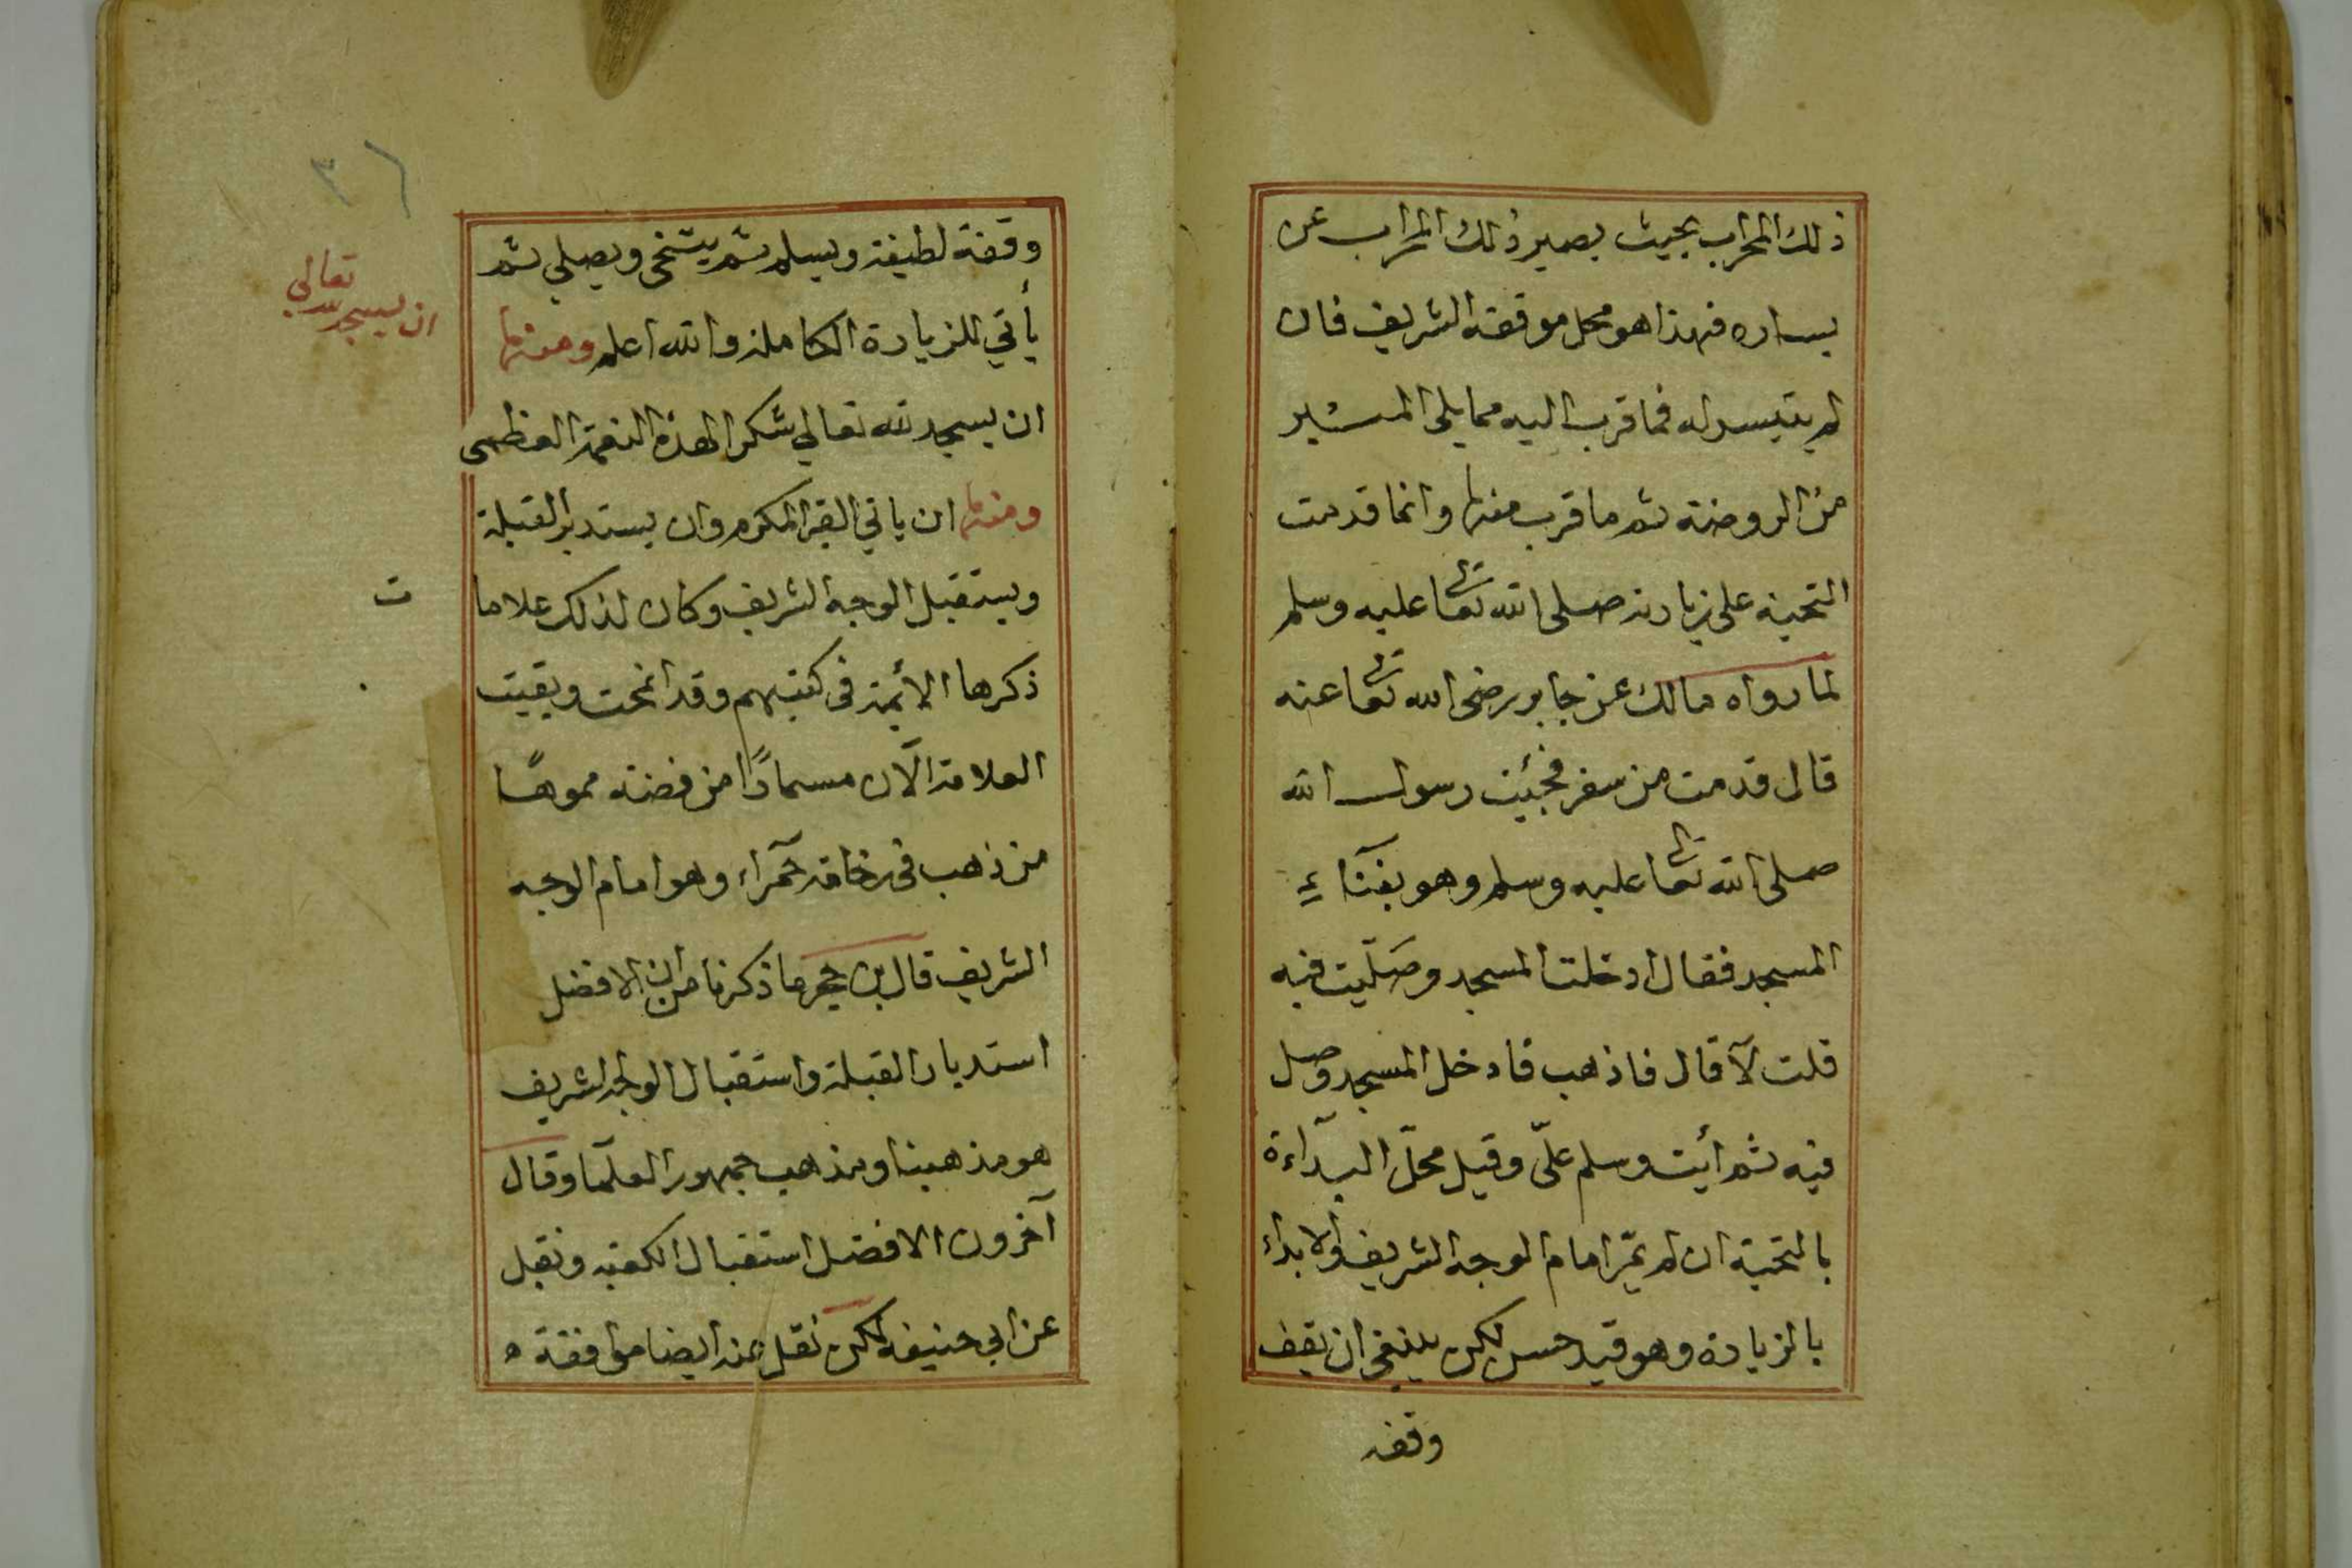 ذلك المحراب بحيث يصير ذلك المحراب عن
يساره فهذا هو محل موقفه الشريف فان
لم يتيسر له فما قرب اليه مما يلي المنبر
من الروضة ثم ما قرب منها وانما قدمت
التحية على زيارته صلى الله تعالى عليه وسلم
لما رواه مالك عن جابر رضى الله تعالى عنه
قال قدمت من سفر فجئت رسول الله
صلى الله تعالى عليه وسلم وهو بفنآء
المسجد فقال ادخلت المسجد وصلّيت فيه
قلت لآ قال فاذهب فادخل المسجد وصل
فيه ثم أيت وسلم علّى وقيل محلّ البدآءة
بالتحية ان لم يمّر امام الوجه الشريف وإلا بداء
بالزيارة وهو قيد حسن لكن ينبغي ان يقف
وقفه
وقفة لطيفة ويسلم ثم يتنحى ويصلي ثم
يأتي للزيارة الكاملة والله اعلم ومنها
ان يسجد لله تعالي شكرا لهذه النعمة العظمى
ومنها ان ياتي القبر المكرم وان يستدبر القبلة
ويستقبل الوجه الشريف وكان لذلك علاما
ت
ذكرها الأئمة في كتبهم وقد انمحت وبقيت
العلامة الآن مسمارًا من فضة مموهًا
من ذهب في رخامة حمرآء وهو امام الوجه
الشريف قال بن حجر ما ذكرنا من ان الافضل
استدبار القبلة واستقبال الوجه الشريف
هو مذهبنا ومذهب جمهور العلمآ وقال
آخرون الافضل استقبال الكعبة ونقل
عن ابي حنيفه لكن نقل عنه ايضا موافقة ه
٣٦
تعالى
ان يسجد لله